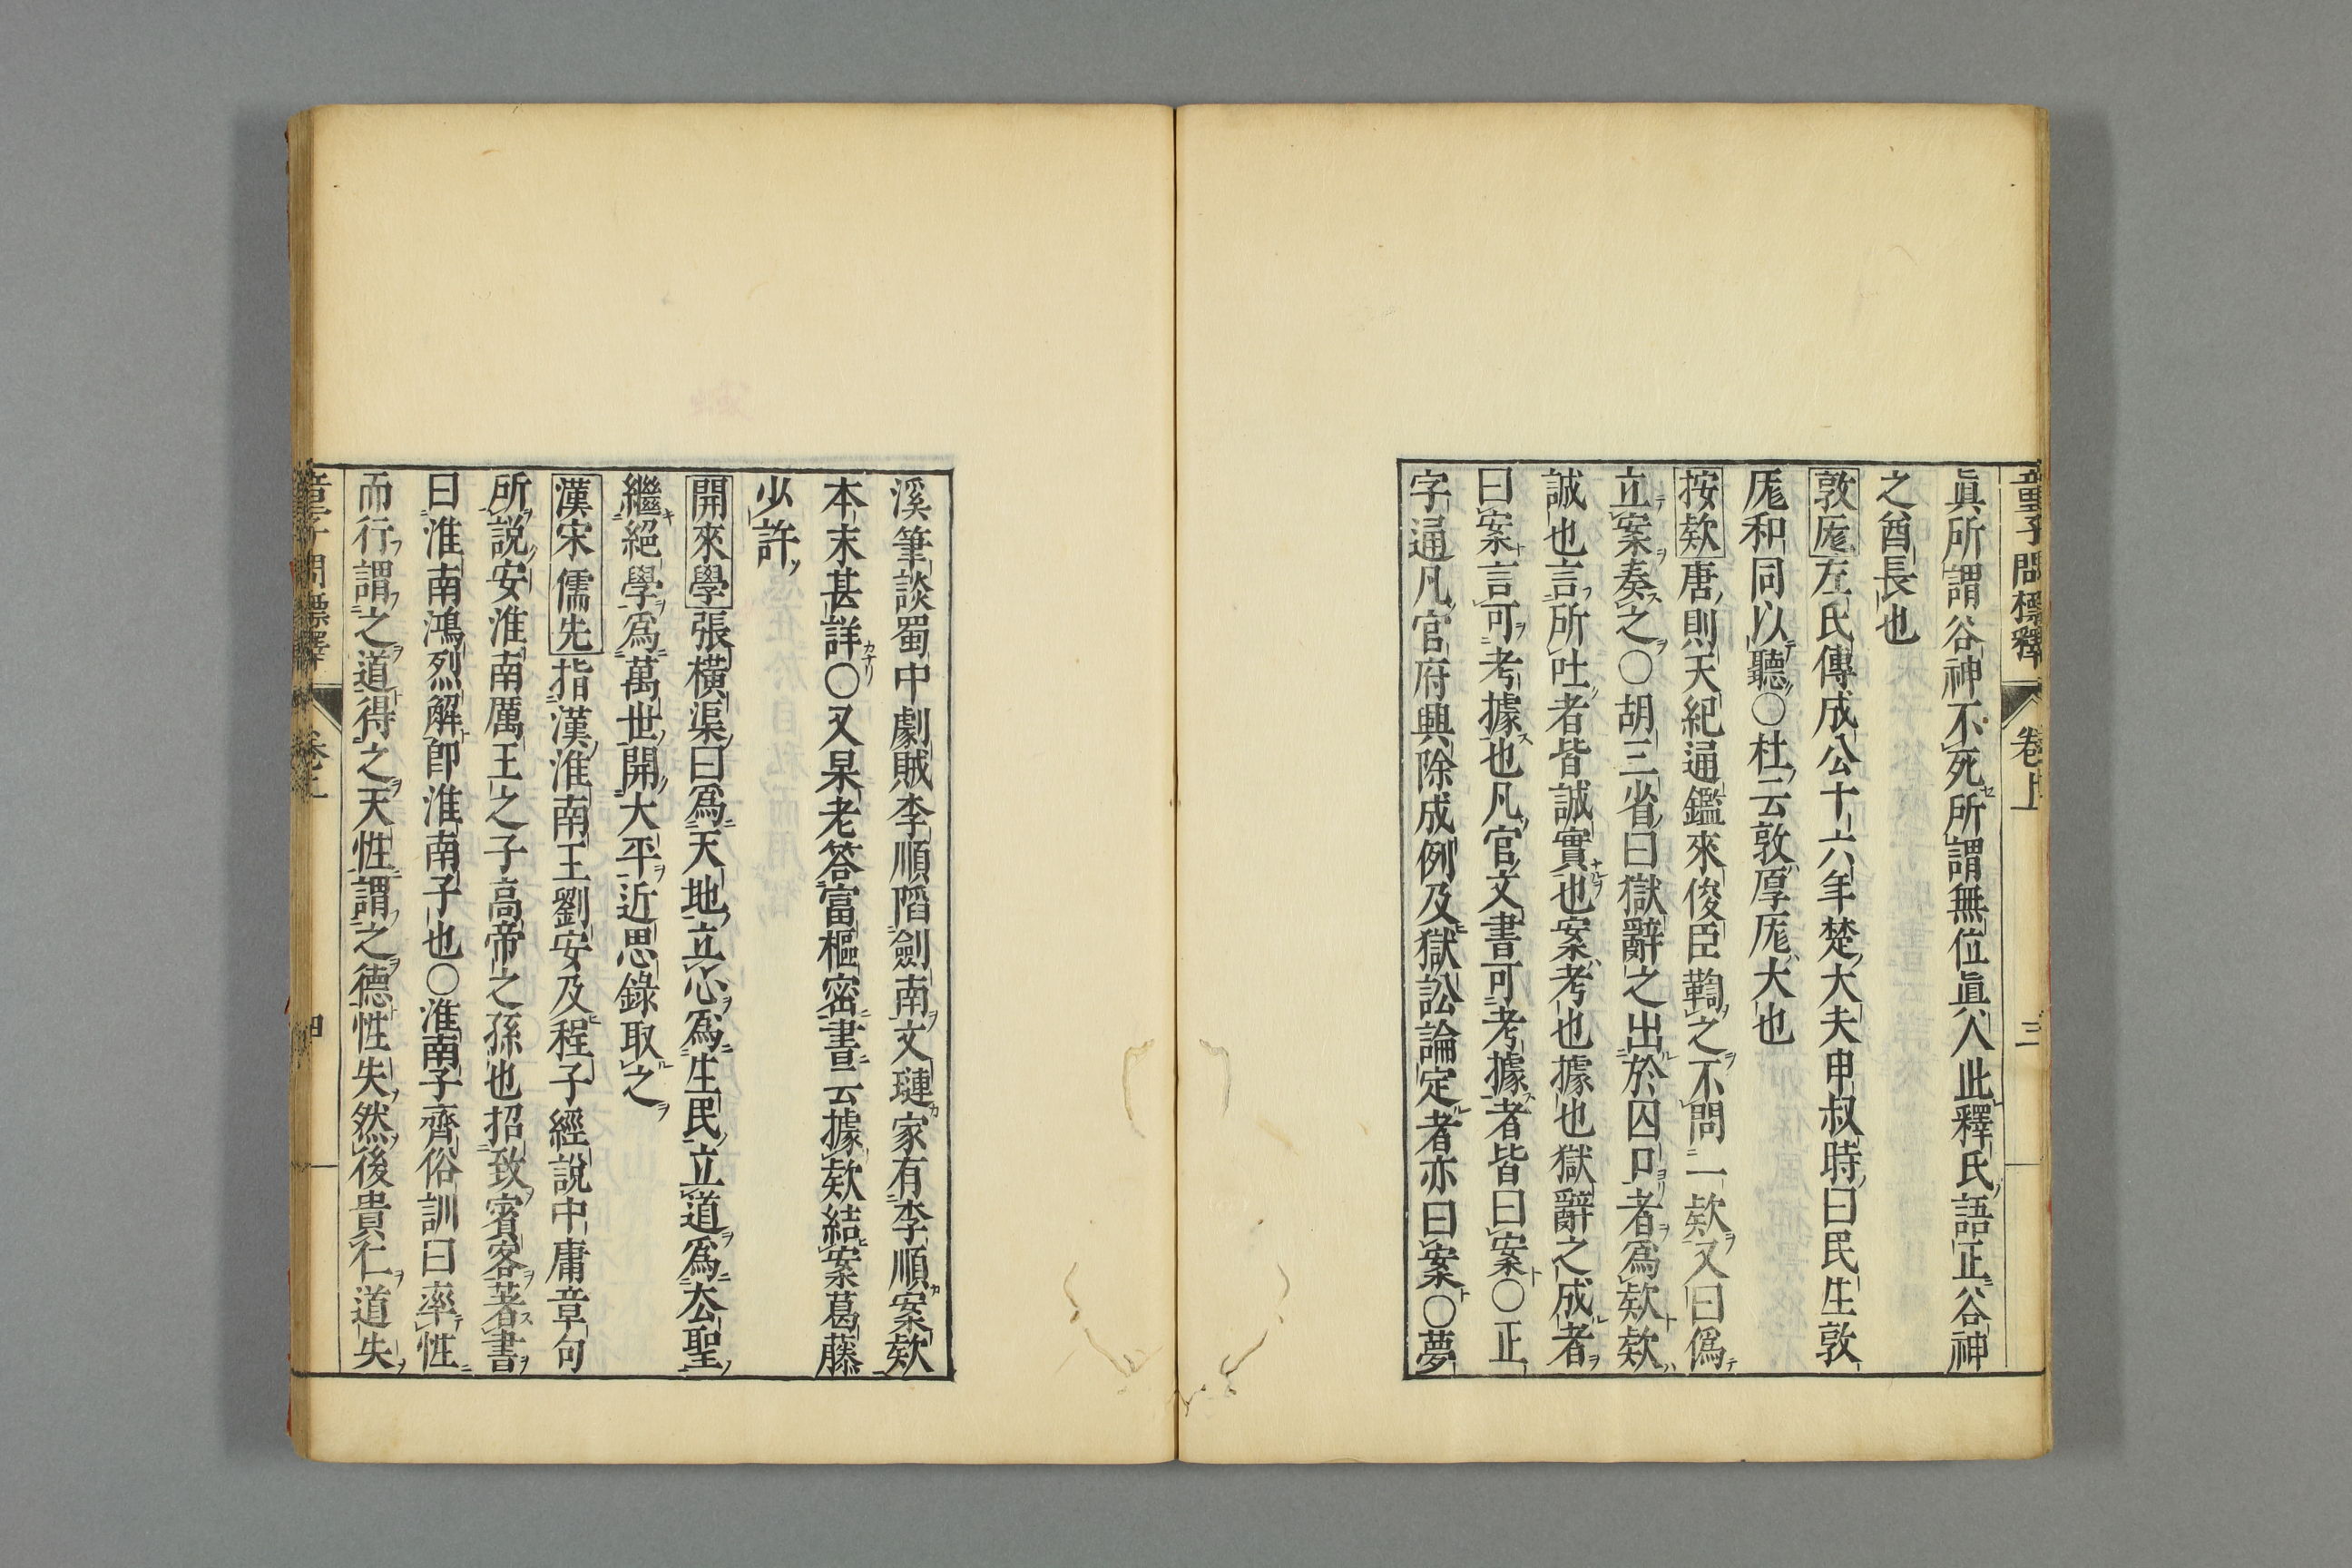 童子問標釋 卷上 三
眞所謂谷神不死所謂無位眞人此釋氏語正谷神
之酋長也
敦厖左氏傳成公十六年楚大夫申叔時曰民生敦
厖和同以聽○杜云敦厚厖大也
按欵唐則天紀通鑑來俊臣鞫之不問一欵又曰僞
立案奏之○胡三省曰獄辭之出於囚口者爲欵欵
誠也言所吐者皆誠實也案考也據也獄辭之成者
曰案言可考據也凡官文書可考據者皆曰案○正
字通凡官府興除成例及獄訟論定者亦曰案○夢
溪筆談蜀中劇賊李順䧟劍南文璉家有李順案欵
本末甚詳○又杲老答富樞密書云據欵結案葛藤
少許
開來學張橫渠曰爲天地立心爲生民立道爲去聖
繼絕學爲萬世開大平近思錄取之
漢宋儒先指漢淮南王劉安及程子經說中庸章句
所説安淮南厲王之子高帝之孫也招致賓客著書
曰淮南鴻烈解卽淮南子也○淮南子齊俗訓曰率性
而行謂之道得之天性謂之德性失然後貴仁道失
童子問標釋 卷上 四